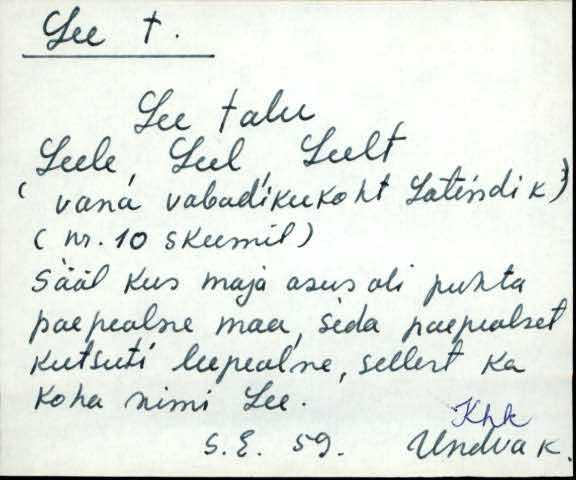 Lee t.
Lee talu
Leele, Leel, Leelt
(vana vabadikukoht Lätińdik)
(nr. 10 skeemil)
Sääl kus maja asus oli puhta
paepealne maa, seda paepealset
kutsuti leepealne, sellest ka
koha nimi Lee.
Khk
S.E. 59. Undva k.